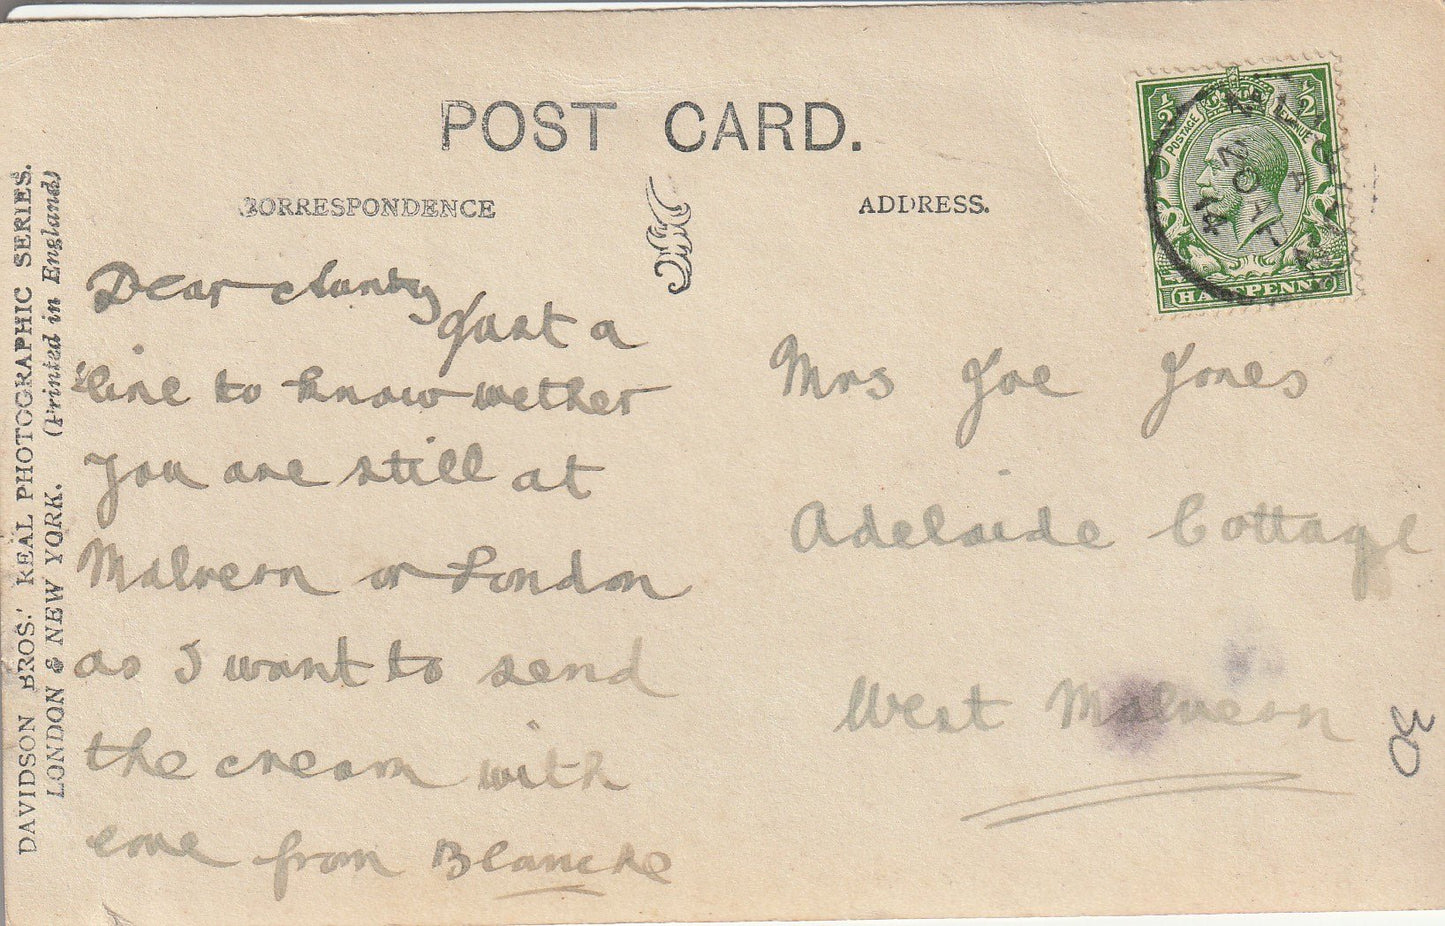 POST CARD.
CORRESPONDENCE
ADDRESS.
DAVIDSON BROS.' REAL PHOTOGRAPHIC SERIES.
LONDON & NEW YORK. (Printed in England)
Dear Aunty
Just a
line to know wether
you are still at
Malvern or London
as I want to send
the cream with
love from Blanche
Mrs Joe Jones
Adelaide Cottage
West Malvern
30
½ ½
POSTAGE REVENUE
HALFPENNY
20 AU
14